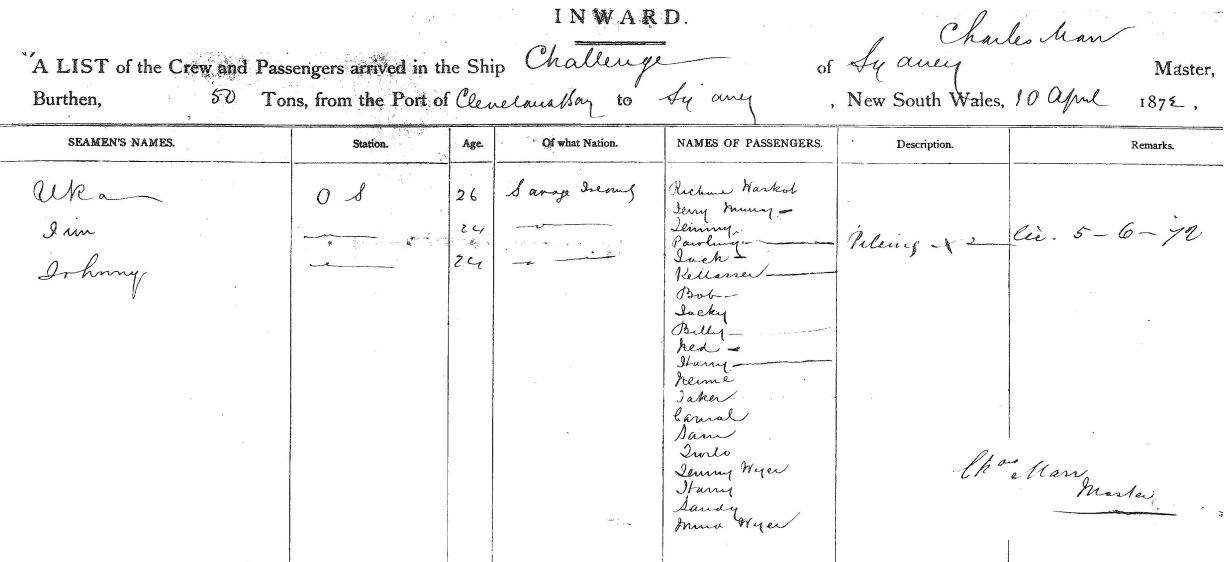 INWARD.
Charles Marr
A LIST of the Crew and Passengers arrived in the Ship Challenge of Sydney Master,
Burthen, 50 Tons, from the Port of Cleveland Bay to Sydney, New South Wales, 10 April 1872,
SEAMEN'S NAMES. Station. Age. Of what Nation. NAMES OF PASSENGERS. Description. Remarks.
Uka O S 26 Savage Island
Jim 24
Johnny 24
Jerry Murry
Jimmy
lic. 5-6-72
Jack
Bob
Jacky
Billy
Ned
Harry
Taker
Sam
Jimmy Wyer
Harry
Sandy
Wyer
Chas Marr
Master